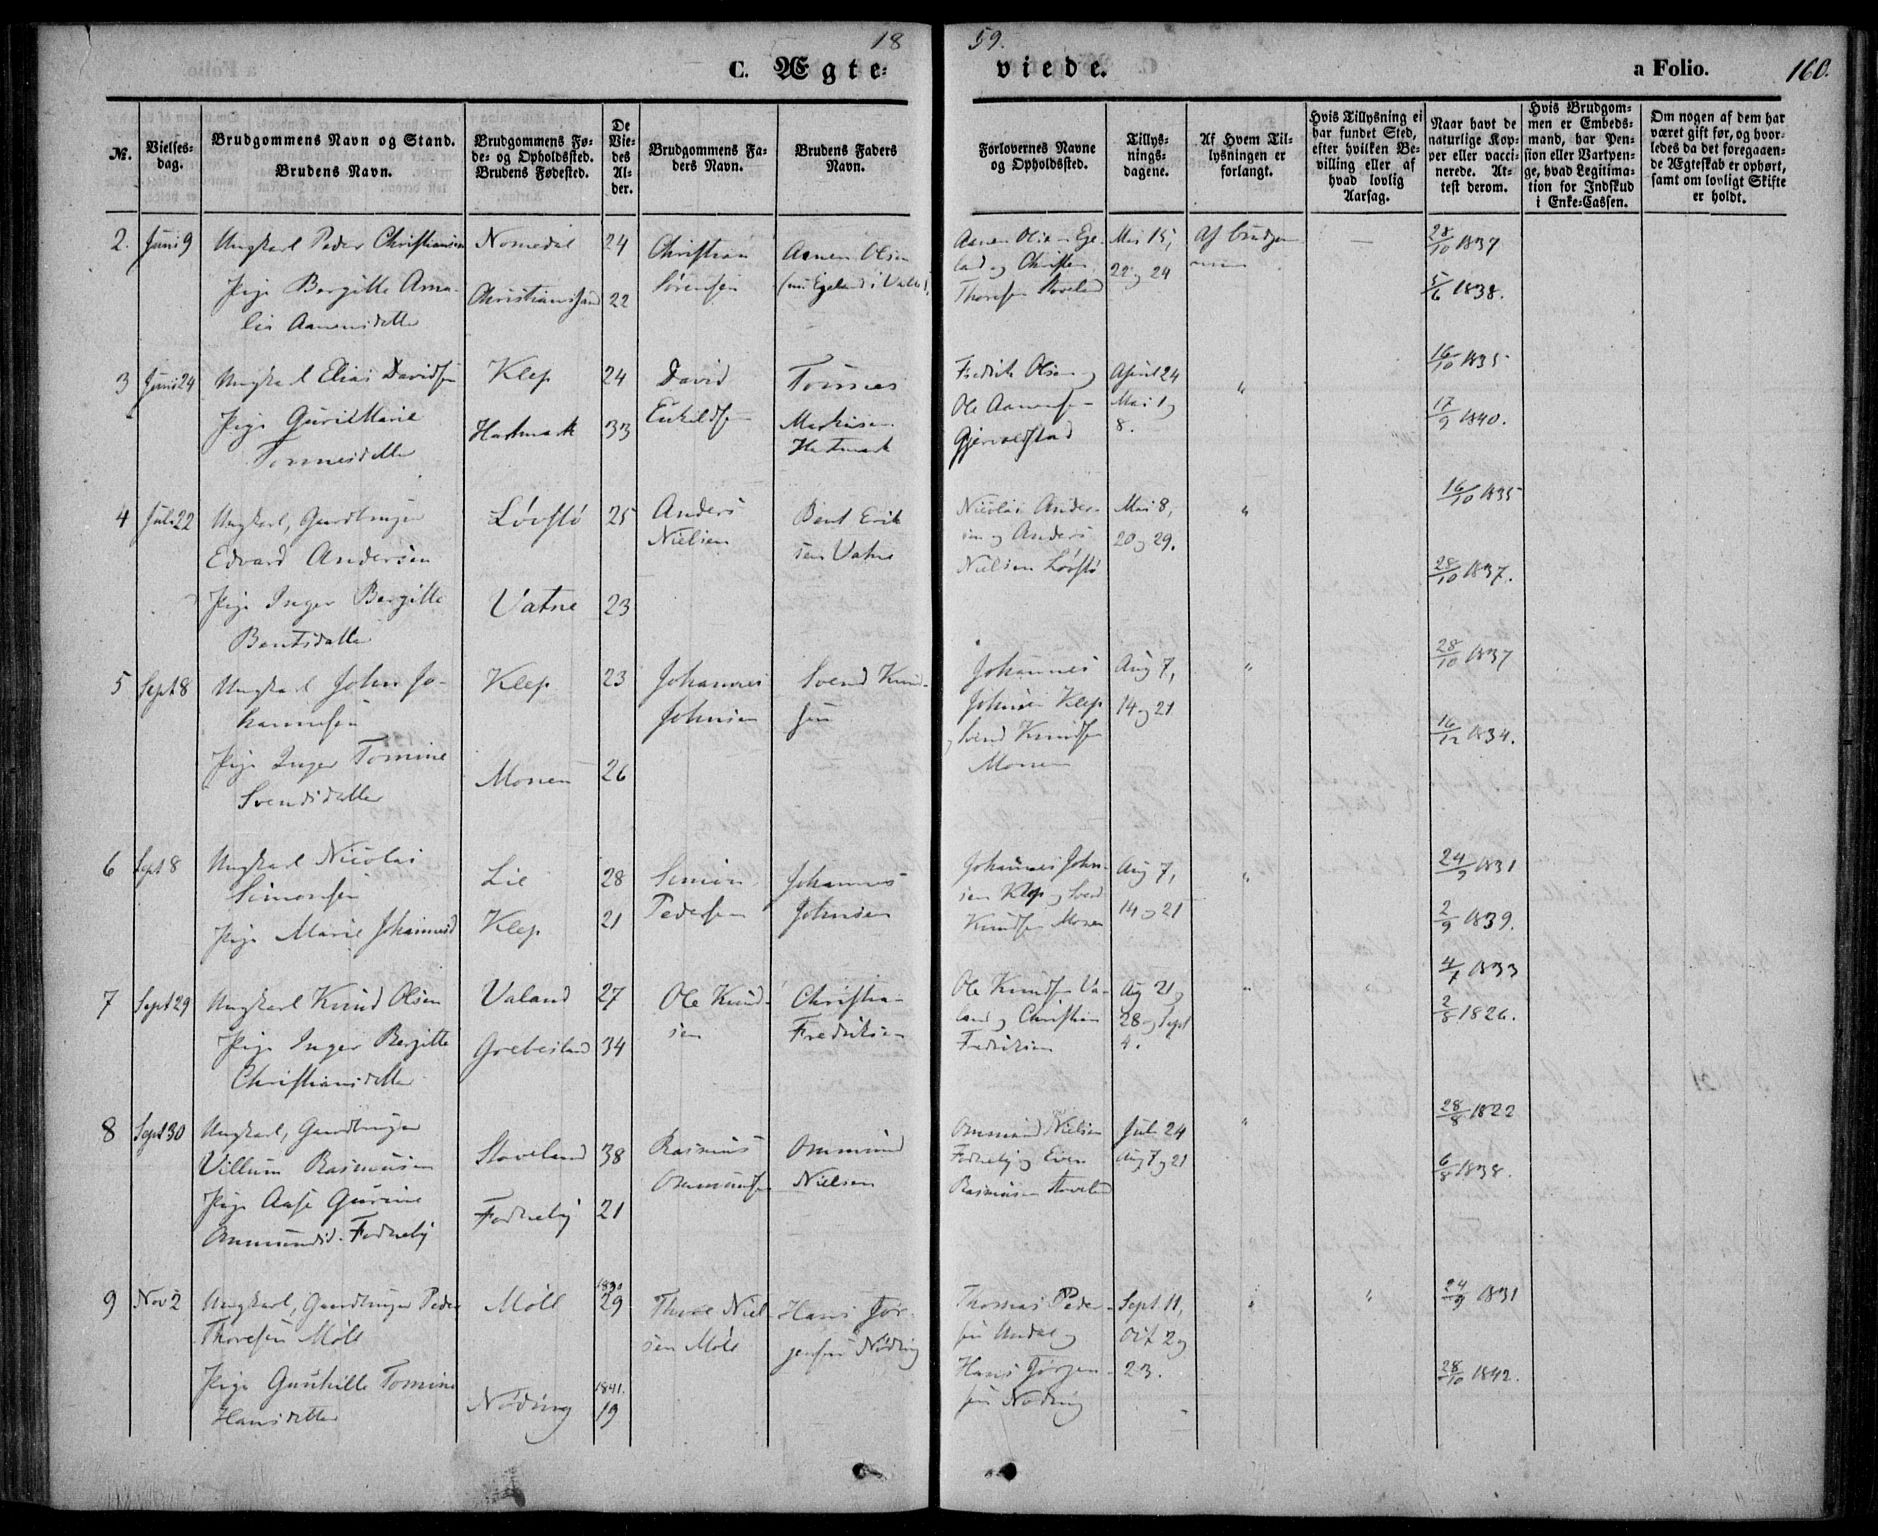 18 59.
C. Ægte- viede. a Folio. 160.
№.
Vielses-
dag.
Brudgommens Navn og Stand.
Brudens Navn.
Brudgommens Fø-
de- og Opholdssted.
Brudens Fødested.
De
Vie-
des
Al-
der.
Brudgommens Fa-
ders Navn.
Brudens Faders
Navn.
Forlovernes Navne
og Opholdssted.
Tillys-
nings-
dagene.
Af Hvem Til-
lysningen er
forlangt.
Hvis Tillysning ei
har fundet Sted,
efter hvilken Be-
villing eller af
hvad lovlig
Aarsag.
Naar havt de
naturlige Kop-
per eller vacci-
nerede. At-
test derom.
Hvis Brudgom-
men er Embeds-
mand, har Pen-
sion eller Vartpen-
ge, hvad Legitima-
tion for Indskud
i Enke-Cassen.
Om nogen af dem har
været gift før, og hvor-
ledes da det foregaaen-
de Ægteskab er ophørt,
samt om lovligt Skifte
er holdt.
2. Juni 9
Ungkarl Peder Christiansen
Pige Bergitte Ama-
lia Aanensdatter
Nomedal
Christianssand
24
22
Christian
Sørensen
Aanen Olsen
Aanen Olsen Ege-
land og Christen
Thoresen Stoveland
Mai 15,
22 og 24
Af Brudgom-
men
—
28/10 1837
5/6 1838.
3 Juni 24
Ungkarl Elias Davidsen
Pige Guril Marie
Tønnesdatter
Klep
Hartmark
24
33
David
Eskildsen
Tønnes
Markusen
Hartmark
Fredrik Olsen og
Ole Aanensen
Gjervoldstad
April 24
Mai 1 og
8.
"
16/10 1835
17/9 1840.
4 Juli 22
Ungkarl, Gaardbruger
Edvard Andersen
Pige Inger Bergitte
Bentsdatter
Løvstø
Vatne
25
23
Anders
Nielsen
Bent Erik
sen Vatne
Nicolai Ander-
sen og Anders
Nielsen Løvstø
Mai 8,
20 og 29.
"
16/10 1835
28/10 1837.
5 Sept 8
Ungkarl John Jo-
hannesen
Pige Inger Tomine
Svendsdatter
Klep
Monen
23
26
Johannes
Johnsen
Svend Knud-
sen
Johannes
Johnsen Klep
og Svend Knudsen
Monen
Aug 7,
14 og 21
"
28/10 1837
16/12 1834.
6 Sept 8
Ungkarl Nicolai
Simonsen
Pige Marie Johannesd
Lie
Klep
28
21
Simon
Pedersen
Johannes
Johnsen
Johannes John-
sen Klep og Svend
Knudsen Monen
Aug 7,
14 og 21
"
24/9 1831
2/9 1839.
7 Sept 29
Ungkarl Knud Olsen
Pige Inger Bergitte
Christiansdatter
Valand
Grebesland
27
34
Ole Knud-
sen
Christian
Fredriksen
Ole Knudsen Va-
land og Christian
Fredriksen
Aug 21,
28 og Sept
4.
"
4/7 1833
2/8 1826.
8 Sept 30
Ungkarl, Gaardbruger
Villum Rasmusen
Pige Aase Gurine
Ommundsd. Fodneby
Stoveland
Fodneby
38
21
Rasmus
Ommunsen
Ommund
Nielsen
Ommund Nielsen
Fodneby og Even
Rasmusen Stoveland
Juli 24
Aug 7 og 21
"
28/8 1822
6/8 1838.
9 Nov 2
Ungkarl, Gaardbruger Peder
Thoresen Møll
Pige Gunhille Tomine
Hansdatter
Møll
Nøding
1830
29
1841.
19
Thore Niel
sen Møll
Hans Jør-
gensen Nøding
Thomas Peder-
sen Undal og
Hans Jørgen-
sen Nøding
Sept. 11,
Oct 2 og
23.
"
"
24/9 1831
28/10 1842.